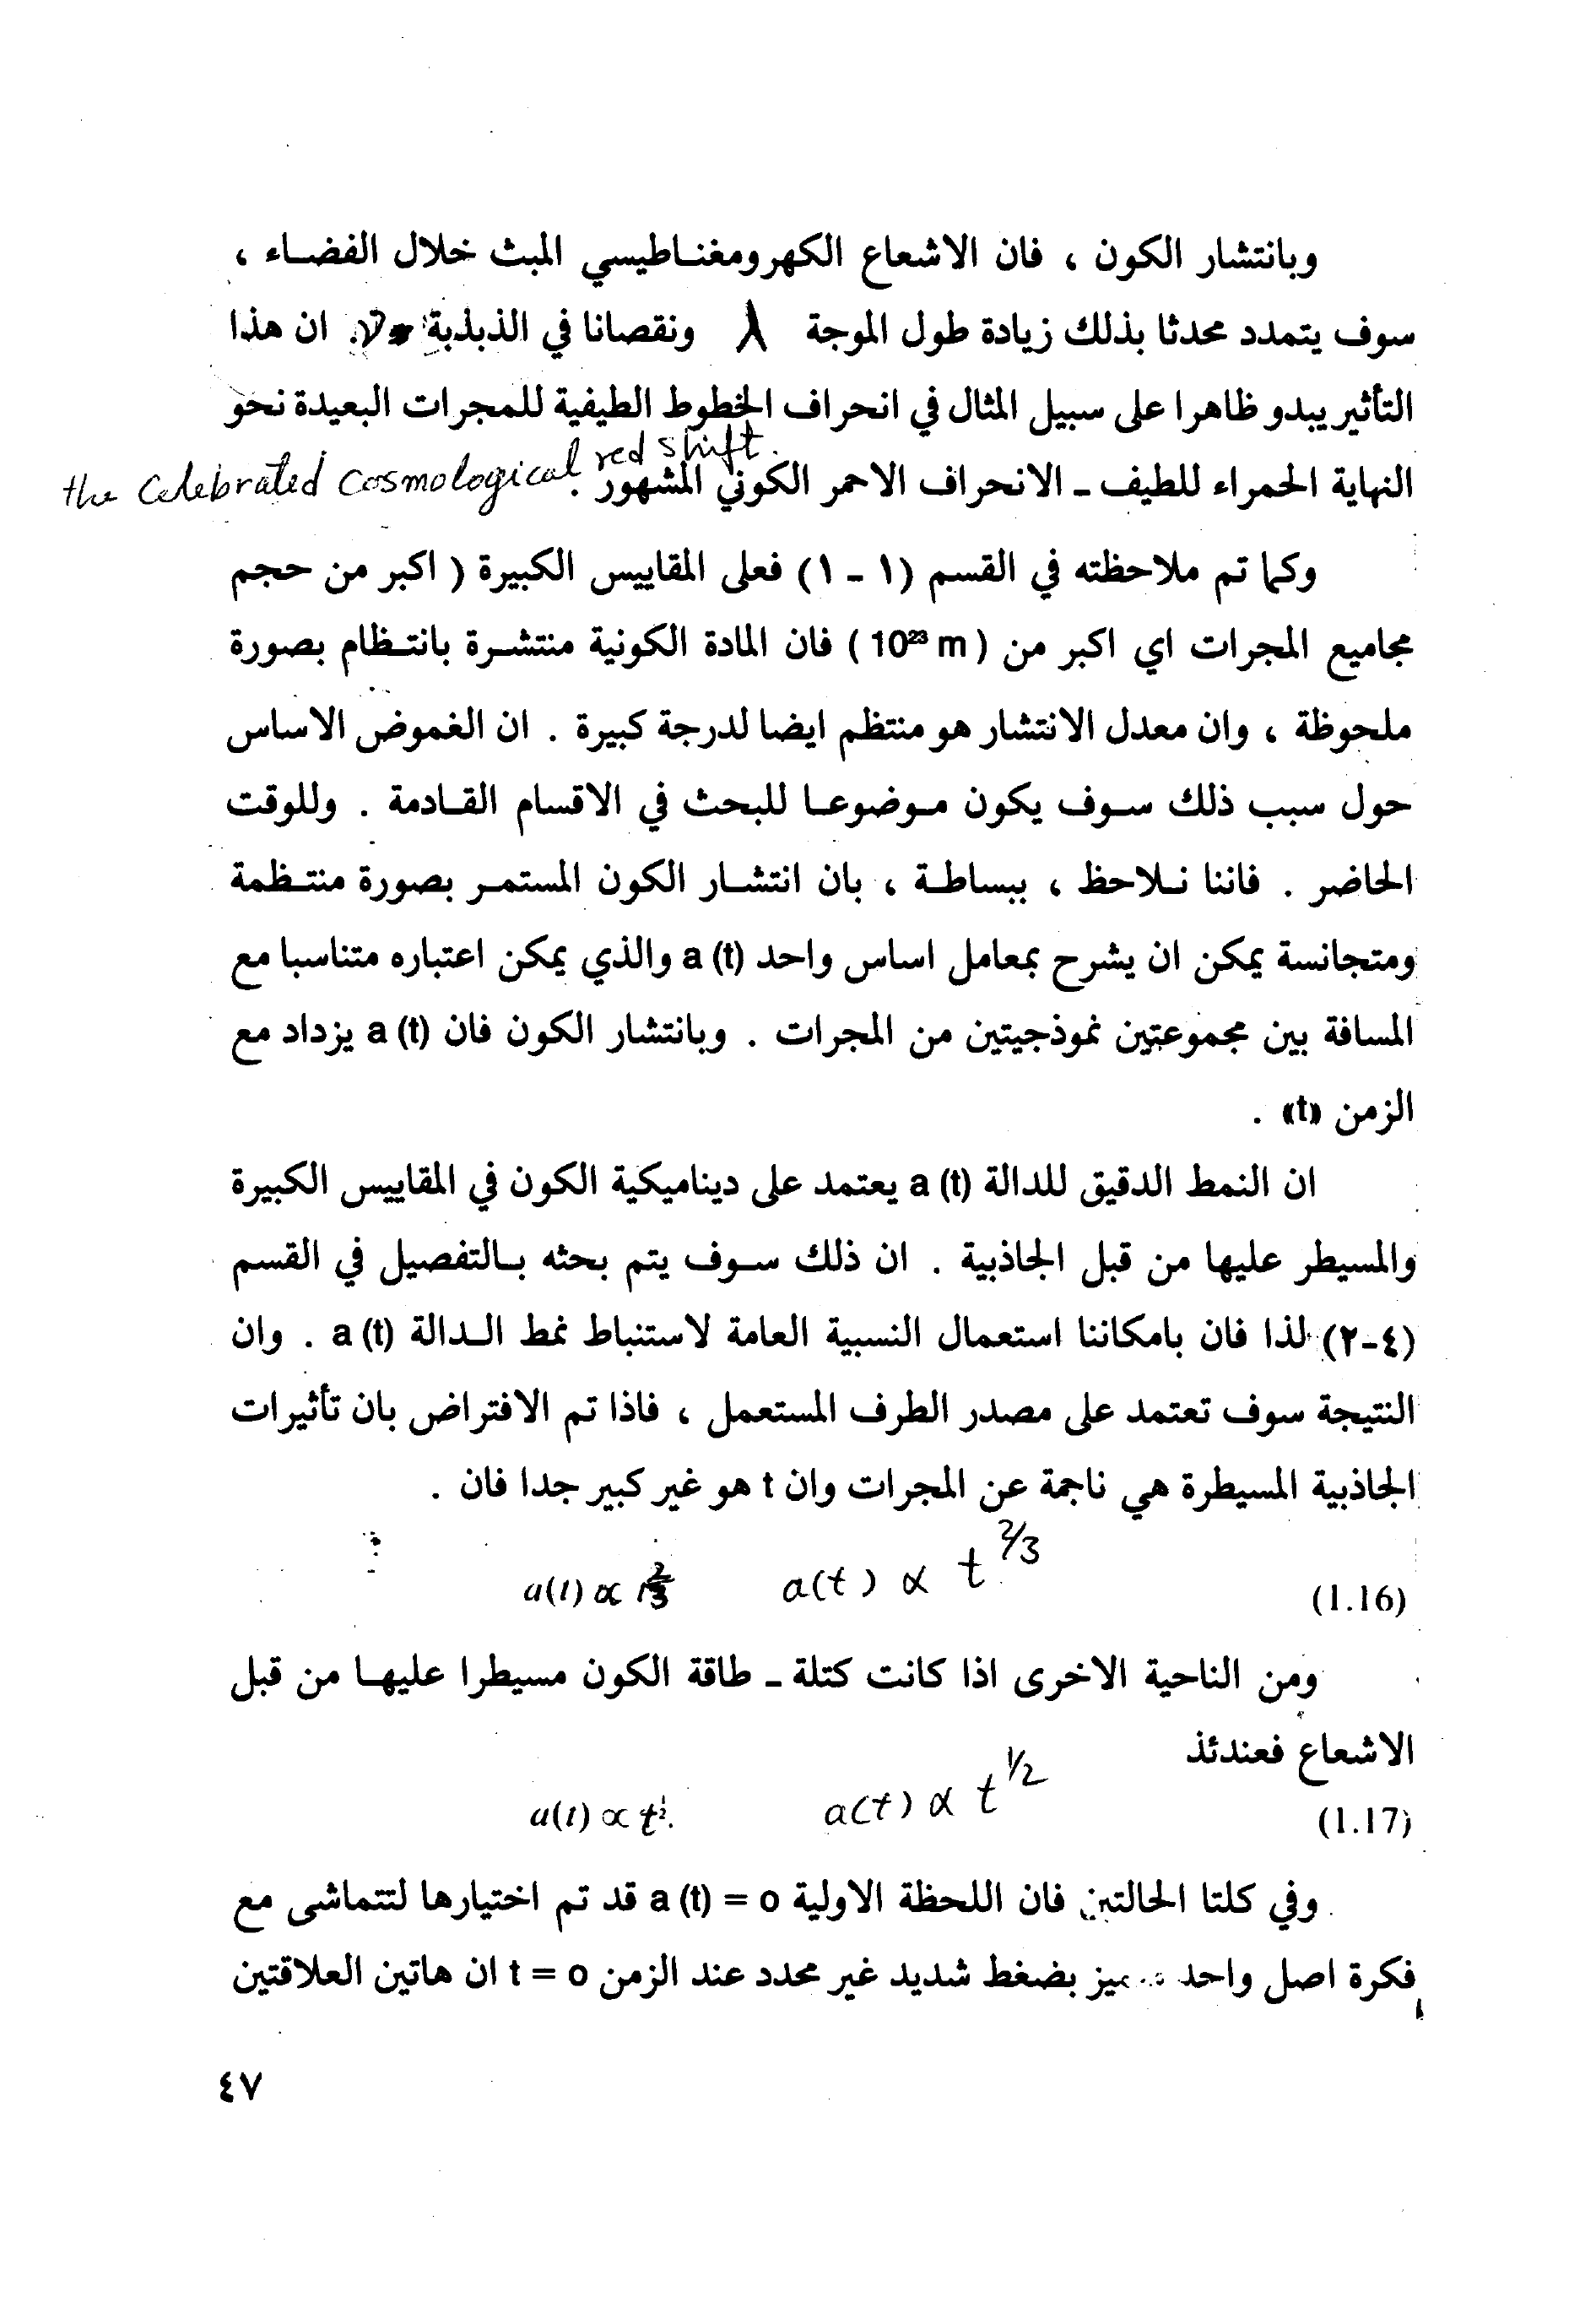 وبانتشار الكون ، فان الاشعاع الكهرومغنـاطيسي المبث خلال الفضـاء ،
سوف يتمدد محدثا بذلك زيادة طول الموجة λ ونقصانا في الذبذبة ν. ان هذا
التأثير يبدو ظاهرا على سبيل المثال في انحراف الخطوط الطيفية للمجرات البعيدة نحو
النهاية الحمراء للطيف ـ الانحراف الاحمر الكوني المشهور . the celebrated cosmological red shift.
وكما تم ملاحظته في القسم (١ - ١) فعلى المقاييس الكبيرة ( اكبر من حجم
مجاميع المجرات اي اكبر من ( 10²³ m ) فان المادة الكونية منتشـرة بانتـظام بصورة
ملحوظة ، وان معدل الانتشار هو منتظم ايضا لدرجة كبيرة . ان الغموض الاساس
حول سبب ذلك سـوف يكون مـوضوعـا للبحث في الاقسام القـادمة . وللوقت
الحاضر . فاننا نـلاحظ ، ببساطـة ، بان انتشـار الكون المستمـر بصورة منتـظمة
ومتجانسة يمكن ان يشرح بمعامل اساس واحد a (t) والذي يمكن اعتباره متناسبا مع
المسافة بين مجموعتين نموذجيتين من المجرات . وبانتشار الكون فان a (t) يزداد مع
الزمن «t» .
ان النمط الدقيق للدالة a (t) يعتمد على ديناميكية الكون في المقاييس الكبيرة
والمسيطر عليها من قبل الجاذبية . ان ذلك سـوف يتم بحثه بـالتفصيل في القسم
(٤-٢) لذا فان بامكاننا استعمال النسبية العامة لاستنباط نمط الـدالة a (t) . وان
النتيجة سوف تعتمد على مصدر الطرف المستعمل ، فاذا تم الافتراض بان تأثيرات
الجاذبية المسيطرة هي ناجمة عن المجرات وان t هو غير كبير جدا فان .
a(t) ∝ t⅔ a(t) ∝ t^2/3 (1.16)
ومن الناحية الاخرى اذا كانت كتلة ـ طاقة الكون مسيطرا عليهـا من قبل
الاشعاع فعندئذ
a(t) ∝ t½. a(t) ∝ t^1/2 (1.17)
وفي كلتا الحالتين فان اللحظة الاولية a (t) = o قد تم اختيارها لتتماشى مع
فكرة اصل واحد بضغط شديد غير محدد عند الزمن t = o ان هاتين العلاقتين
٤٧